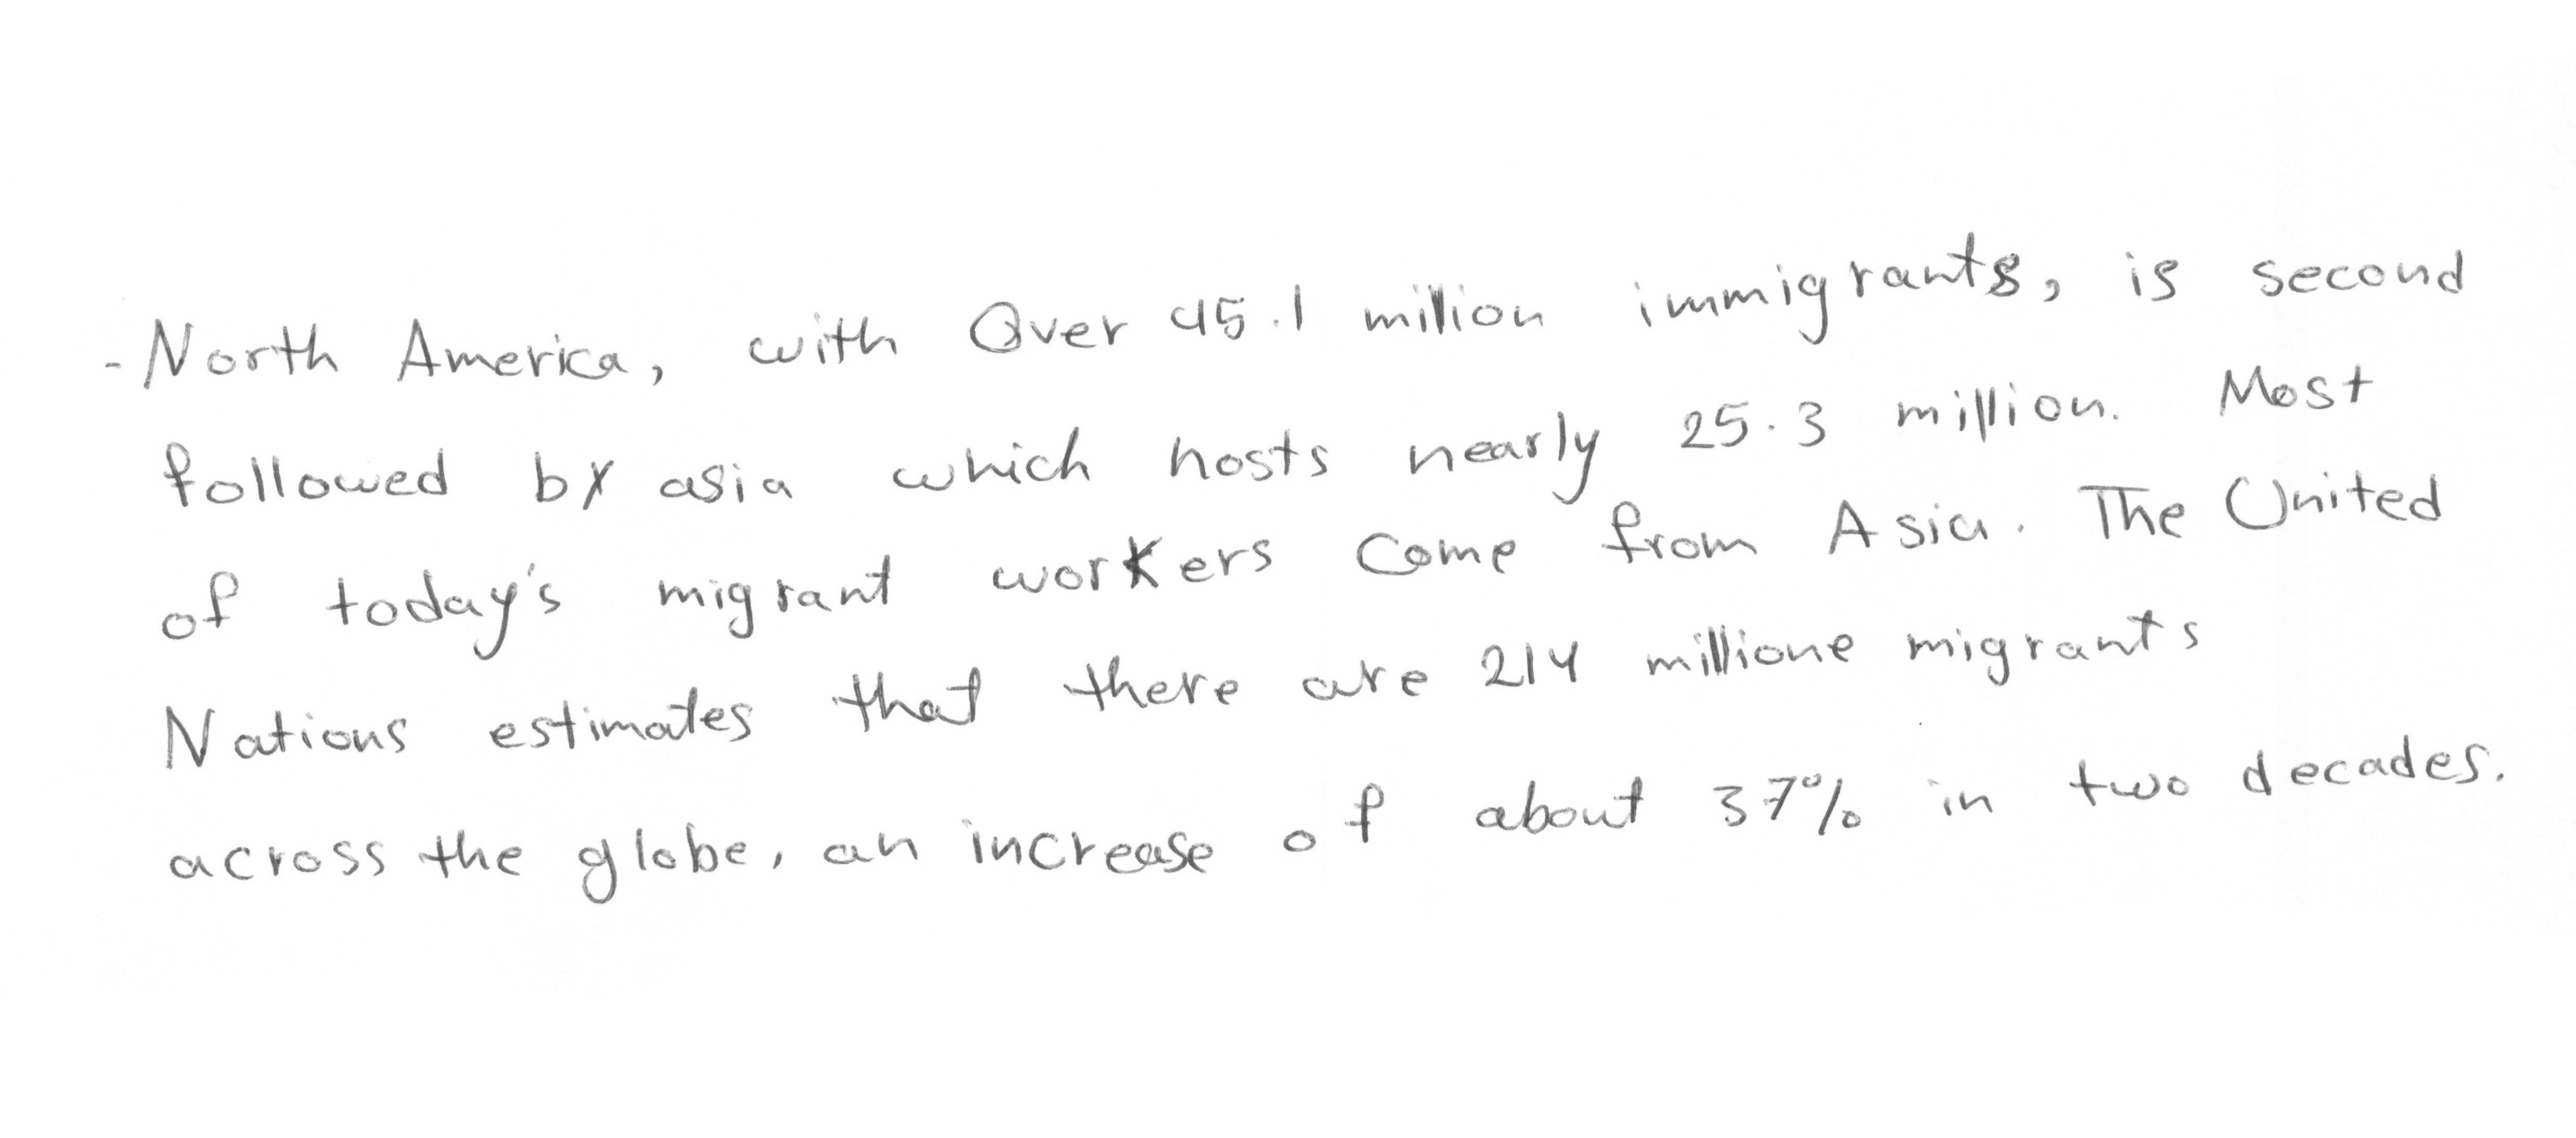 - North America, with Over 45.1 million immigrants, is second
followed by asia which hosts nearly 25.3 million. Most
of today's migrant workers Come from Asia. The United
Nations estimates that there are 214 millione migrants
across the globe, an increase of about 37% in two decades.